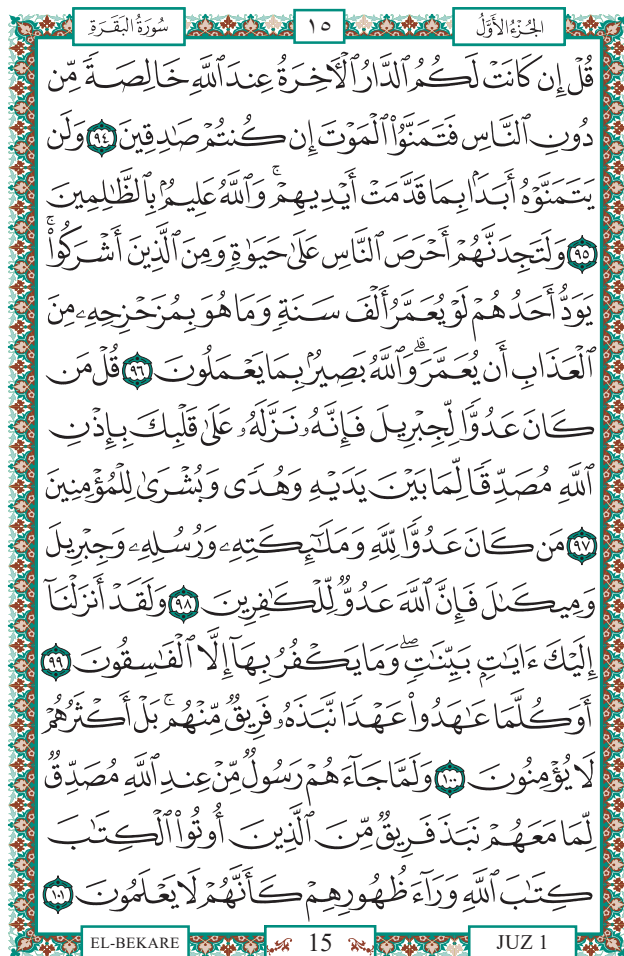 سُورَةُ البَقَرَةِ ١٥ الجُزْءُ الأَوَّلُ
قُلْ إِن كَانَتْ لَكُمُ ٱلدَّارُ ٱلْأَخِرَةُ عِندَ ٱللَّهِ خَالِصَةً مِّن
دُونِ ٱلنَّاسِ فَتَمَنَّوُاْ ٱلْمَوْتَ إِن كُنتُمْ صَٰدِقِينَ ٩٤ وَلَن
يَتَمَنَّوْهُ أَبَدَۢا بِمَا قَدَّمَتْ أَيْدِيهِمْۚ وَٱللَّهُ عَلِيمُۢ بِٱلظَّٰلِمِينَ
٩٥ وَلَتَجِدَنَّهُمْ أَحْرَصَ ٱلنَّاسِ عَلَىٰ حَيَوٰةٖ وَمِنَ ٱلَّذِينَ أَشْرَكُواْۚ
يَوَدُّ أَحَدُهُمْ لَوْ يُعَمَّرُ أَلْفَ سَنَةٖ وَمَا هُوَ بِمُزَحْزِحِهِۦ مِنَ
ٱلْعَذَابِ أَن يُعَمَّرَۗ وَٱللَّهُ بَصِيرُۢ بِمَا يَعْمَلُونَ ٩٦ قُلْ مَن
كَانَ عَدُوّٗا لِّجِبْرِيلَ فَإِنَّهُۥ نَزَّلَهُۥ عَلَىٰ قَلْبِكَ بِإِذْنِ
ٱللَّهِ مُصَدِّقٗا لِّمَا بَيْنَ يَدَيْهِ وَهُدٗى وَبُشْرَىٰ لِلْمُؤْمِنِينَ
٩٧ مَن كَانَ عَدُوّٗا لِّلَّهِ وَمَلَٰٓئِكَتِهِۦ وَرُسُلِهِۦ وَجِبْرِيلَ
وَمِيكَىٰلَ فَإِنَّ ٱللَّهَ عَدُوّٞ لِّلْكَٰفِرِينَ ٩٨ وَلَقَدْ أَنزَلْنَآ
إِلَيْكَ ءَايَٰتِۭ بَيِّنَٰتٖۖ وَمَا يَكْفُرُ بِهَآ إِلَّا ٱلْفَٰسِقُونَ ٩٩
أَوَكُلَّمَا عَٰهَدُواْ عَهْدٗا نَّبَذَهُۥ فَرِيقٞ مِّنْهُمۚ بَلْ أَكْثَرُهُمْ
لَا يُؤْمِنُونَ ١٠٠ وَلَمَّا جَآءَهُمْ رَسُولٞ مِّنْ عِندِ ٱللَّهِ مُصَدِّقٞ
لِّمَا مَعَهُمْ نَبَذَ فَرِيقٞ مِّنَ ٱلَّذِينَ أُوتُواْ ٱلْكِتَٰبَ
كِتَٰبَ ٱللَّهِ وَرَآءَ ظُهُورِهِمْ كَأَنَّهُمْ لَا يَعْلَمُونَ ١٠١
EL-BEKARE 15 JUZ 1